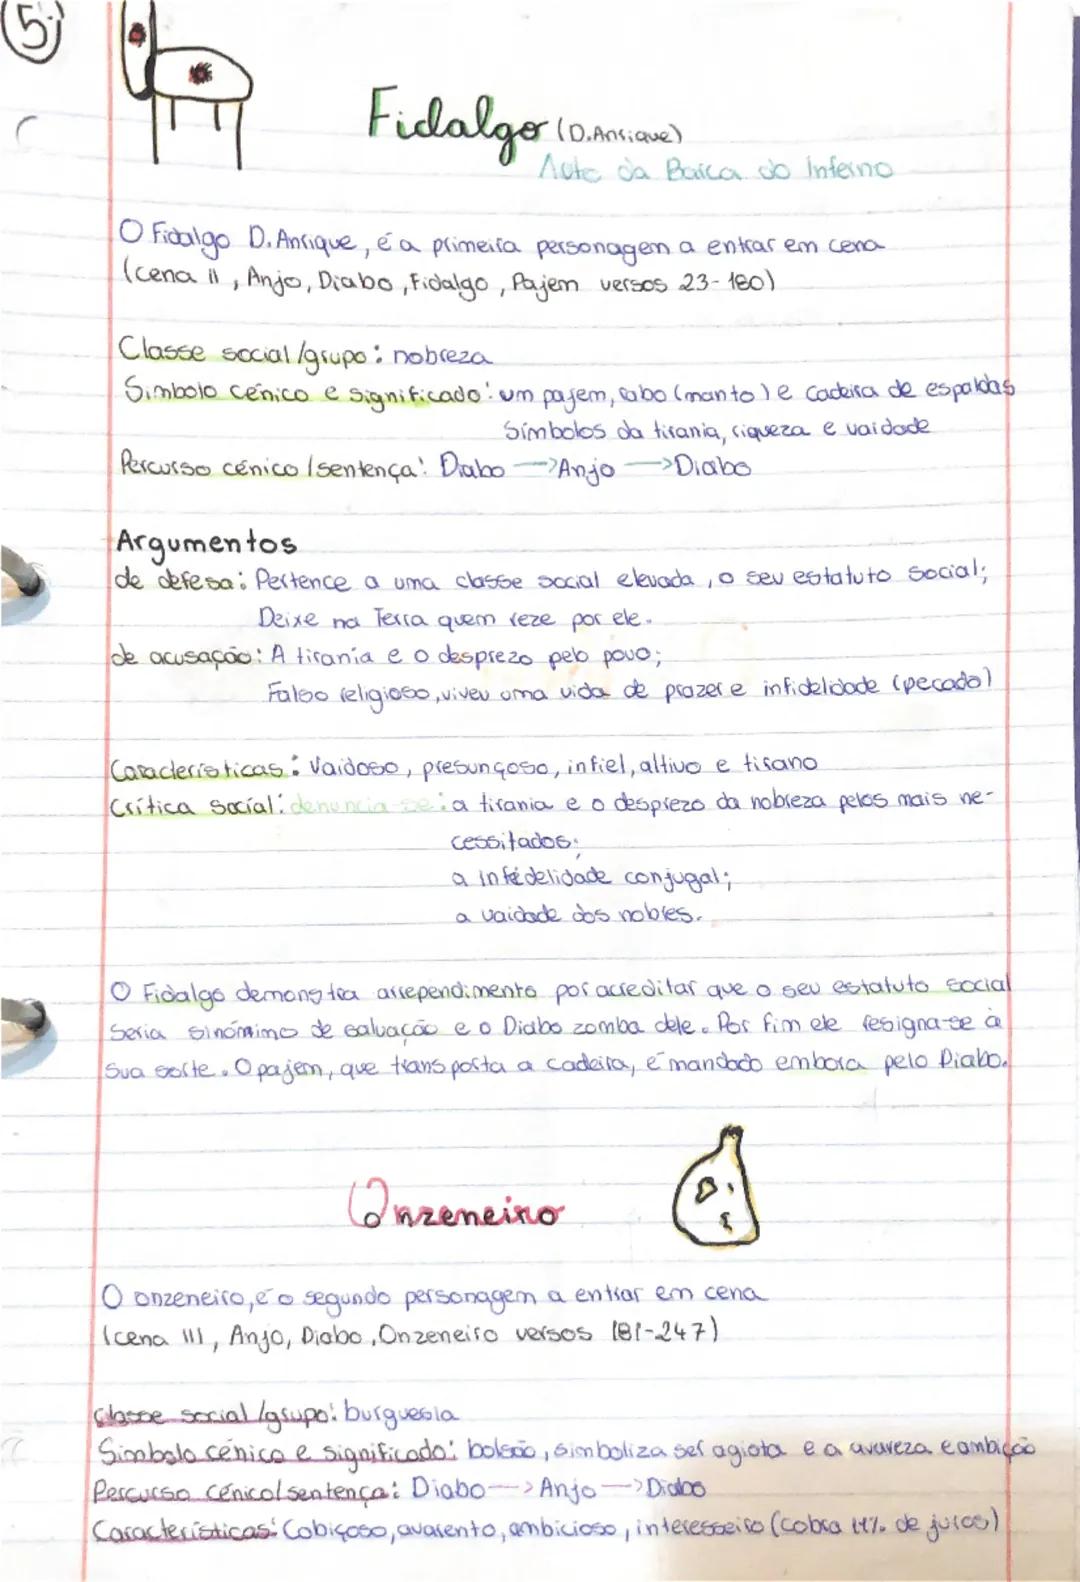 5.
Fidalgo (D.Anrique)
Auto da Barca do Inferno
O Fidalgo D.Anrique, é a primeira personagem a entrar em cena
(cena II, Anjo, Diabo, Fidalgo, Pajem versos 23-180)
Classe social/grupo: nobreza
Símbolo cénico e significado: um pajem, rabo (manto) e cadeira de espaldas
Símbolos da tirania, riqueza e vaidade
Percurso cénico/sentença: Diabo → Anjo → Diabo
Argumentos
de defesa: Pertence a uma classe social elevada, o seu estatuto social;
Deixe na Terra quem reze por ele.
de acusação: A tirania e o desprezo pelo povo;
Falso religioso, viveu uma vida de prazer e infidelidade (pecado)
Características: Vaidoso, presunçoso, infiel, altivo e tirano
Crítica Social: denuncia-se: a tirania e o desprezo da nobreza pelos mais ne-
cessitados;
a infidelidade conjugal;
a vaidade dos nobres.
O Fidalgo demonstra arrependimento por acreditar que o seu estatuto social
seria sinónimo de salvação e o Diabo zomba dele. Por fim ele resigna-se à
sua sorte. O pajem, que transporta a cadeira, é mandado embora pelo Diabo.
Onzeneiro
O onzeneiro, é o segundo personagem a entrar em cena
(cena III, Anjo, Diabo, Onzeneiro versos 181-247)
Classe social/grupo: burguesia
Símbolo cénico e significado: bolsão, simboliza ser agiota e a avareza e ambição
Percurso cénico/sentença: Diabo → Anjo → Diabo
Características: Cobiçoso, avarento, ambicioso, interesseiro (cobra 11% de juros)